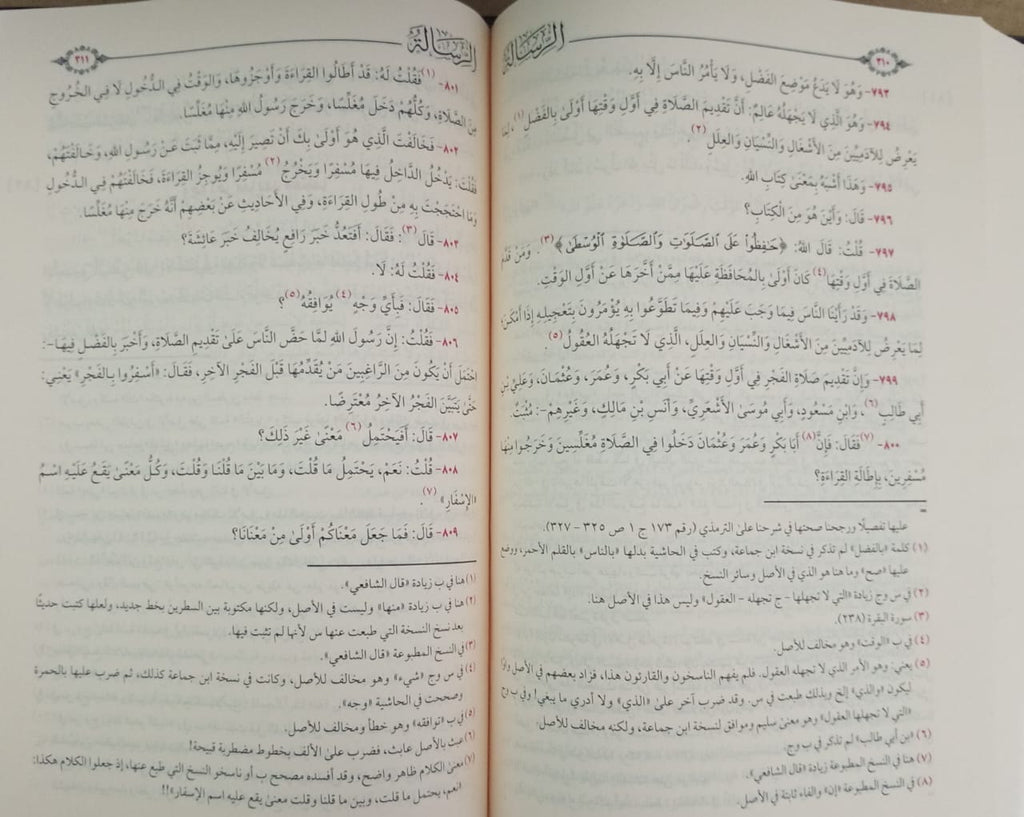 ٣١٠
الرسالة
٧٩٣- وَهُوَ لَا يَدَعُ مَوْضِعَ الفَضْلِ، وَلَا يَأْمُرُ النَّاسَ إِلَّا بِهِ.
٧٩٤- وَهُوَ الَّذِي لَا يَجْهَلُهُ عَالِمٌ: أَنَّ تَقْدِيمَ الصَّلَاةِ فِي أَوَّلِ وَقْتِهَا أَوْلَىٰ بِالفَضْلِ(١)، لِمَا
يَعْرِضُ لِلآدَمِيِّينَ مِنَ الأَشْغَالِ وَالنِّسْيَانِ وَالعِلَلِ(٢).
٧٩٥- وَهَذَا أَشْبَهُ بِمَعْنَىٰ كِتَابِ اللهِ.
٧٩٦- قَالَ: وَأَيْنَ هُوَ مِنَ الْكِتَابِ؟
٧٩٧- قُلْتُ: قَالَ اللهُ: ﴿حَٰفِظُوا۟ عَلَى ٱلصَّلَوَٰتِ وَٱلصَّلَوٰةِ ٱلْوُسْطَىٰ﴾(٣). وَمَنْ قَدَّمَ
الصَّلَاةَ فِي أَوَّلِ وَقْتِهَا(٤) كَانَ أَوْلَىٰ بِالمُحَافَظَةِ عَلَيْهَا مِمَّنْ أَخَّرَهَا عَنْ أَوَّلِ الوَقْتِ.
٧٩٨- وَقَدْ رَأَيْنَا النَّاسَ فِيمَا وَجَبَ عَلَيْهِمْ وَفِيمَا تَطَوَّعُوا بِهِ يُؤْمَرُونَ بِتَعْجِيلِهِ إِذَا أَمْكَنَ،
لِمَا يَعْرِضُ لِلآدَمِيِّينَ مِنَ الأَشْغَالِ وَالنِّسْيَانِ وَالعِلَلِ، الَّذِي لَا تَجْهَلُهُ العُقُولُ(٥).
٧٩٩- وَإِنَّ تَقْدِيمَ صَلَاةِ الفَجْرِ فِي أَوَّلِ وَقْتِهَا عَنْ أَبِي بَكْرٍ، وَعُمَرَ، وَعُثْمَانَ، وَعَلِيِّ بْنِ
أَبِي طَالِبٍ(٦)، وَابْنِ مَسْعُودٍ، وَأَبِي مُوسَىٰ الأَشْعَرِيِّ، وَأَنَسِ بْنِ مَالِكٍ، وَغَيْرِهِمْ-: مُثْبَتٌ.
٨٠٠- (٧)فَقَالَ: فَإِنَّ(٨) أَبَا بَكْرٍ وَعُمَرَ وَعُثْمَانَ دَخَلُوا فِي الصَّلَاةِ مُغَلِّسِينَ وَخَرَجُوا مِنْهَا
مُسْفِرِينَ، بِإِطَالَةِ القِرَاءَةِ؟
عليها تفصيلًا ورجحنا صحتها في شرحنا علىٰ الترمذي (رقم ١٧٣ ج ١ ص ٣٢٥ - ٣٢٧).
(١) كلمة «بالفضل» لم تذكر في نسخة ابن جماعة، وكتب في الحاشية بدلها «بالناس» بالقلم الأحمر، ووضع
عليها «صح» وما هنا هو الذي في الأصل وسائر النسخ.
(٢) في س وج زيادة «التي لا تجهلها - ج تجهله - العقول» وليس هذا في الأصل هنا.
(٣) سورة البقرة (٢٣٨).
(٤) في ب «الوقت» وهو مخالف للأصل.
(٥) يعني: وهو الأمر الذي لا تجهله العقول. فلم يفهم الناسخون والقارئون هذا، فزاد بعضهم في الأصل واوًا
ليكون «والذي» إلخ وبذلك طبعت في س. وقد ضرب آخر علىٰ «الذي» ولا أدري ما يبغي! وفي ب وج
«التي لا تجهلها العقول» وهو معنىٰ سليم وموافق لنسخة ابن جماعة، ولكنه مخالف للأصل.
(٦) «بن أبي طالب» لم تذكر في ب وج.
(٧) هنا في النسخ المطبوعة زيادة «قال الشافعي».
(٨) في النسخ المطبوعة «إن» والفاء ثابتة في الأصل.
الرسالة
٣١١
٨٠١- (١)فَقُلْتُ لَهُ: قَدْ أَطَالُوا القِرَاءَةَ وَأَوْجَزُوهَا، وَالوَقْتُ فِي الدُّخُولِ لَا فِي الخُرُوجِ
مِنَ الصَّلَاةِ، وَكُلُّهُمْ دَخَلَ مُغَلِّسًا، وَخَرَجَ رَسُولُ اللهِ مِنْهَا مُغَلِّسًا.
٨٠٢- فَخَالَفْتَ الَّذِي هُوَ أَوْلَىٰ بِكَ أَنْ تَصِيرَ إِلَيْهِ، مِمَّا ثَبَتَ عَنْ رَسُولِ اللهِ، وَخَالَفْتَهُمْ،
فَقُلْتَ: يَدْخُلُ الدَّاخِلُ فِيهَا مُسْفِرًا وَيَخْرُجُ(٢) مُسْفِرًا وَيُوجِزُ القِرَاءَةَ، فَخَالَفْتَهُمْ فِي الدُّخُولِ
وَمَا احْتَجَجْتَ بِهِ مِنْ طُولِ القِرَاءَةِ، وَفِي الأَحَادِيثِ عَنْ بَعْضِهِمْ أَنَّهُ خَرَجَ مِنْهَا مُغَلِّسًا.
٨٠٣- قَالَ(٣): فَقَالَ: أَفَتَعُدُّ خَبَرَ رَافِعٍ يُخَالِفُ خَبَرَ عَائِشَةَ؟
٨٠٤- فَقُلْتُ لَهُ: لَا.
٨٠٥- فَقَالَ: فَبِأَيِّ وَجْهٍ(٤) يُوَافِقُهُ(٥)؟
٨٠٦- فَقُلْتُ: إِنَّ رَسُولَ اللهِ لَمَّا حَضَّ النَّاسَ عَلَىٰ تَقْدِيمِ الصَّلَاةِ، وَأَخْبَرَ بِالفَضْلِ فِيهَا-:
احْتَمَلَ أَنْ يَكُونَ مِنَ الرَّاغِبِينَ مَنْ يُقَدِّمُهَا قَبْلَ الفَجْرِ الآخِرِ، فَقَالَ: «أَسْفِرُوا بِالفَجْرِ» يَعْنِي:
حَتَّىٰ يَتَبَيَّنَ الفَجْرُ الآخِرُ مُعْتَرِضًا.
٨٠٧- قَالَ: أَفَيَحْتَمِلُ(٦) مَعْنًى غَيْرَ ذَلِكَ؟
٨٠٨- قُلْتُ: نَعَمْ، يَحْتَمِلُ مَا قُلْتَ، وَمَا بَيْنَ مَا قُلْنَا وَقُلْتَ، وَكُلَّ مَعْنًى يَقَعُ عَلَيْهِ اسْمُ
«الإِسْفَارِ»(٧).
٨٠٩- قَالَ: فَمَا جَعَلَ مَعْنَاكُمْ أَوْلَىٰ مِنْ مَعْنَانَا؟
(١) هنا في ب زيادة «قال الشافعي».
(٢) هنا في ب زيادة «منها» وليست في الأصل، ولكنها مكتوبة بين السطرين بخط جديد، ولعلها كتبت حديثًا
بعد نسخ النسخة التي طبعت عنها س لأنها لم تثبت فيها.
(٣) في النسخ المطبوعة «قال الشافعي».
(٤) في س وج «شيء» وهو مخالف للأصل، وكانت في نسخة ابن جماعة كذلك، ثم ضرب عليها بالحمرة
وصححت في الحاشية «وجه».
(٥) في ب «توافقه» وهو خطأ ومخالف للأصل.
(٦) عبث بالأصل عابث، فضرب علىٰ الألف بخطوط مضطربة قبيحة!
(٧) معنىٰ الكلام ظاهر واضح، وقد أفسده مصحح ب أو ناسخو النسخ التي طبع عنها، إذ جعلوا الكلام هكذا:
«نعم، يحتمل ما قلت، وبين ما قلنا وقلت معنىٰ يقع عليه اسم الإسفار»!!